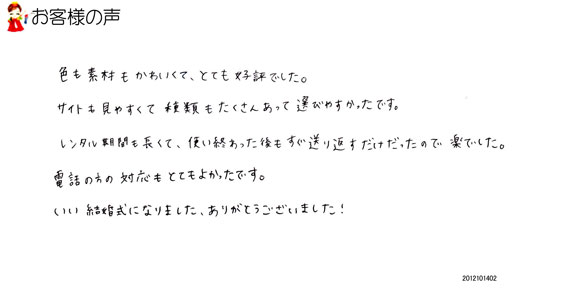 お客様の声
色も素材もかわいくて、とても好評でした。
サイトも見やすくて種類もたくさんあって選びやすかったです。
レンタル期間も長くて、使い終わった後もすぐ送り返すだけだったので楽でした。
電話の方の対応もとてもよかったです。
いい結婚式になりました、ありがとうございました！
2012101402